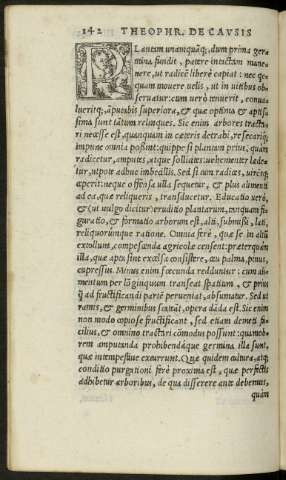 142 THEOPHR. DE CAVSIS
PLantam unamquāq; dum prima ger-
mina fundit, patere intactam mane-
nere, ut radicē liberè capiat: nec que-
quam mouere uelis, ut in uitibus ob-
seruatur: cum uerò inuenerit, conua-
lueritq;, amputabis superiora, & quæ optima & aptis-
sima sunt tātum relinques. Sic enim arbores tracta-
ri necesse est, quanquam in cæteris detrahi, resecariq;
impune omnia possint: quippe si plantam prius, quàm
radicetur, amputes, atque sollicites: uehementer læde-
tur, utpote adhuc imbecillis. Sed si iam radicat, uirésq;
aperit: neque offensa ulla sequetur, & plus alimenti
ad ea, quæ reliqueris, transducetur. Educatio verò,
& (ut uulgo dicitur) eruditio plantarum, unquam fi-
guratio, & formatio arborum est, alti, submissi, lati,
reliquorumque ratione. Omnia ferè, quæ se in altū
extollunt, compescenda agricolæ censent: præterquàm
illa, quæ apta sint excelsa consistere, ceu palma, pinus,
cupressus. Minus enim fœcunda redduntur: cum ali-
mentum per lōginquum transeat spatium, & prius
q̃ ad fructificandi partē perueniat, absumatur. Sed ut
ramis, & germinibus exeat, opera dāda est. Sic enim
non modo copiose fructificant, sed etiam demeti fa-
cilius, & omnino tractari cōmodius possunt: quamob-
rem amputanda prohibendáque germina illa sunt,
quæ intempestiue excurrunt. Quæ quidem cultura, atq;
conditio purgationi ferè proxima est, quæ perfectis
adhibetur arboribus, de qua disserere ante debemus,
quàm